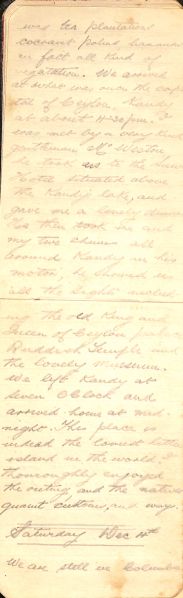 was tea plantations
cocoanut palms bananas
in fact all kind of
vegetation. We arrived
at what was once the cap-
ital of Ceylon, Kandy
at about 4.30 p.m. I
was met by a very kind
gentleman Mr Weston
he took us to the
Hotel situated above
the Kandy lake, and
gave me a lovely dinner
he then took me and
my two chums all
around Kandy in his
motor, he showed us
all the sights includ
ing the old King and
Queen of Ceylon palace
Buddish Temple and
the lovely museum.
We left Kandy at
seven O'Clock and
arrived home at mid-
night. This place is
indead the lovest little
island in the world. I
thouroughly enjoyed
the outing and the natives
quant cuttoms, and ways.
Saturday Dec 14th
We are still in Columbo